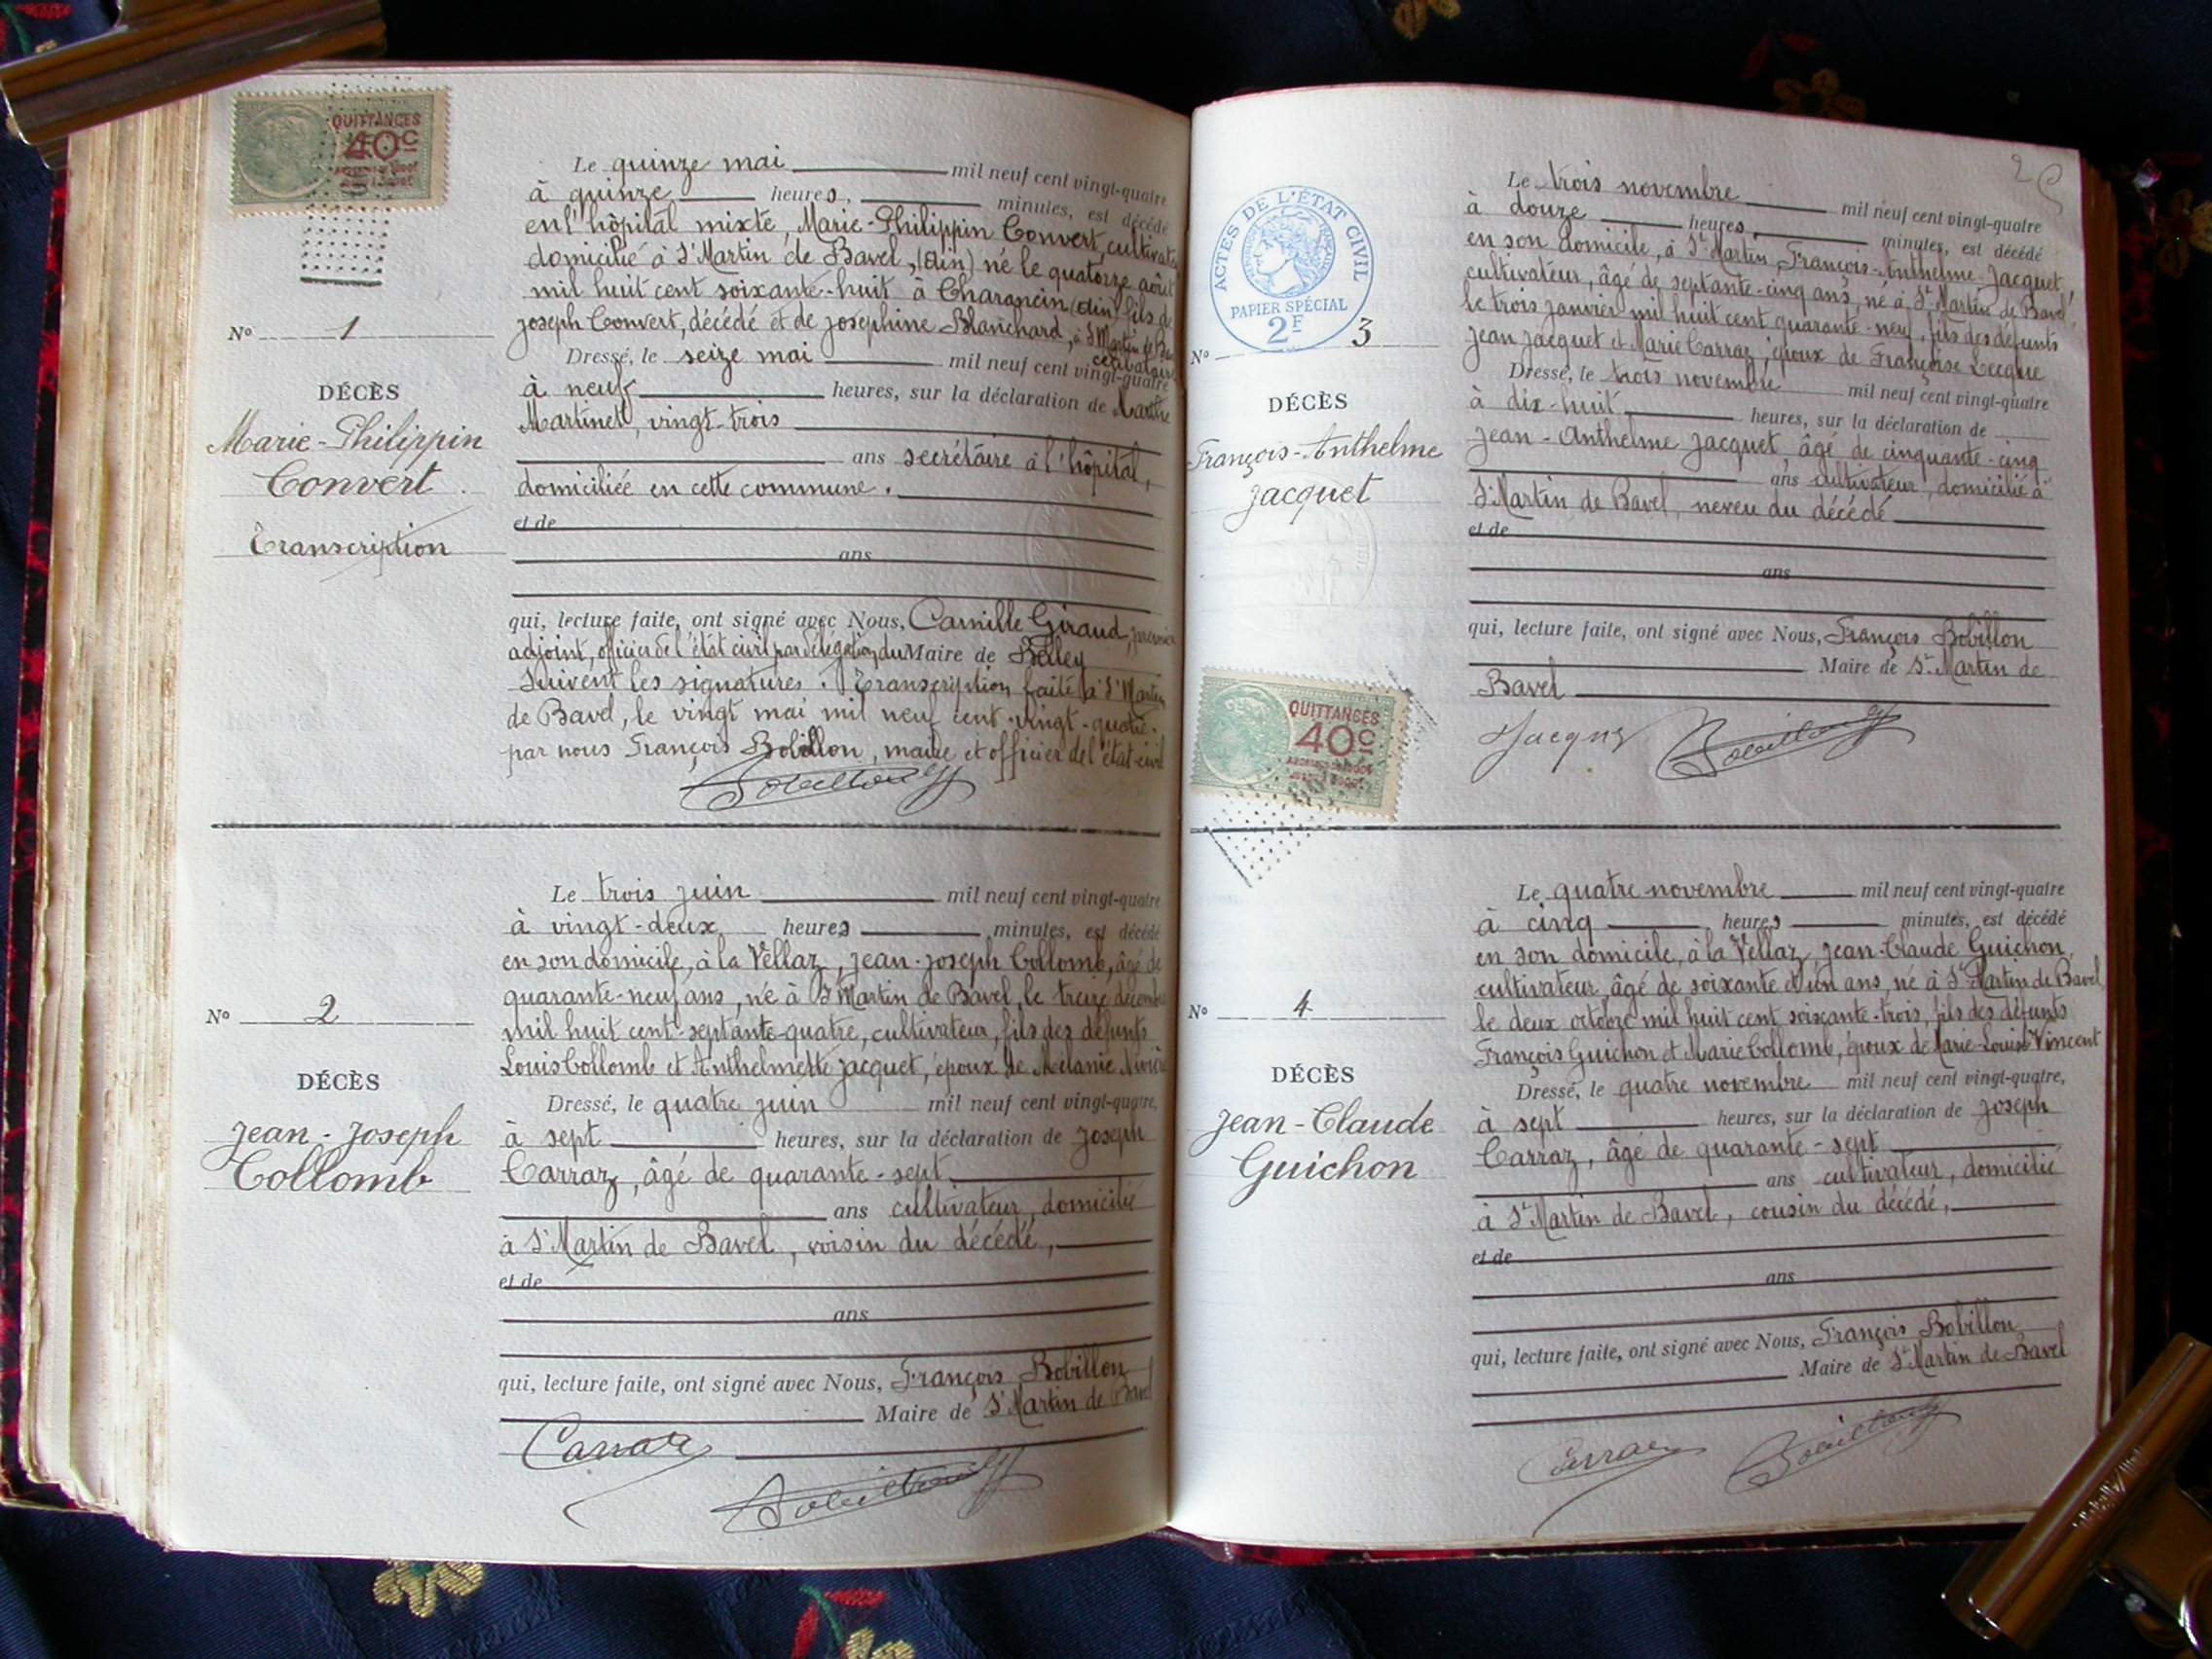 QUITTANCES
40C
Le quinze mai mil neuf cent vingt-quatre
à quinze heures, minutes, est décédé
en l'hôpital mixte, Marie-Philippin Convert, cultivate
domicilié à St Martin de Bavel, (Ain) né le quatorze août
mil huit cent soixante-huit à Charancin (Ain) fils de
Joseph Convert, décédé et de Josephine Blanchard, à St Martin de Ba
cultivateurs
Nº 1
Dressé, le seize mai mil neuf cent vingt-quatre
à neuf heures, sur la déclaration de Marthe
Martinet, vingt-trois
ans secrétaire à l'hôpital,
domiciliée en cette commune.
et de
ans
DÉCÈS
Marie-Philippin
Convert.
Transcription
qui, lecture faite, ont signé avec Nous, Camille Giraud, premier
adjoint, officier de l'état civil par délégation du Maire de Belley
Suivent les signatures. Transcription faite à St Martin
de Bavel, le vingt mai mil neuf cent vingt-quatre.
par nous François Bobillon, maire et officier de l'état-civil
Bobillon
Le trois juin mil neuf cent vingt-quatre
à vingt-deux heures minutes, est décédé
en son domicile, à la Vellaz, Jean-Joseph Collomb, âgé de
quarante-neuf ans, né à St Martin de Bavel, le treize décembre
mil huit cent-septante-quatre, cultivateur, fils des défunts
Louis Collomb et Anthelmette Jacquet, époux de Mélanie
Nº 2
DÉCÈS
Jean-Joseph
Collomb
Dressé, le quatre juin mil neuf cent vingt-quatre,
à sept heures, sur la déclaration de Joseph
Carraz, âgé de quarante-sept
ans cultivateur, domicilié
à St Martin de Bavel, voisin du décédé,
et de
ans
qui, lecture faite, ont signé avec Nous, François Bobillon
Maire de St Martin de Bavel
Carraz
Bobillon
2
ACTES DE L'ÉTAT CIVIL
PAPIER SPÉCIAL
2F
Le trois novembre mil neuf cent vingt-quatre
à douze heures, minutes, est décédé
en son domicile, à St Martin, François-Anthelme Jacquet,
cultivateur, âgé de septante-cinq ans, né à St Martin de Bavel,
le trois janvier mil huit cent quarante-neuf, fils des défunts
Jean Jacquet et Marie Carraz, époux de Françoise Lecque
Nº 3
DÉCÈS
François-Anthelme
Jacquet
Dressé, le trois novembre mil neuf cent vingt-quatre
à dix-huit heures, sur la déclaration de
Jean-Anthelme Jacquet, âgé de cinquante-cinq
ans cultivateur, domicilié à
St Martin de Bavel, neveu du décédé
et de
ans
qui, lecture faite, ont signé avec Nous, François Bobillon
Maire de St Martin de
Bavel
Bobillon
QUITTANCES
40C
Le quatre novembre mil neuf cent vingt-quatre
à cinq heures minutes, est décédé
en son domicile, à la Vellaz, Jean-Claude Guichon,
cultivateur, âgé de soixante et un ans, né à St Martin de Bavel,
le deux octobre mil huit cent soixante-trois, fils des défunts
François Guichon et Marie Collomb, époux de Marie-Louise Vincent
Nº 4
DÉCÈS
Jean-Claude
Guichon
Dressé, le quatre novembre mil neuf cent vingt-quatre,
à sept heures, sur la déclaration de Joseph
Carraz, âgé de quarante-sept
ans cultivateur, domicilié
à St Martin de Bavel, cousin du décédé,
et de
ans
qui, lecture faite, ont signé avec Nous, François Bobillon
Maire de St Martin de Bavel
Carraz
Bobillon